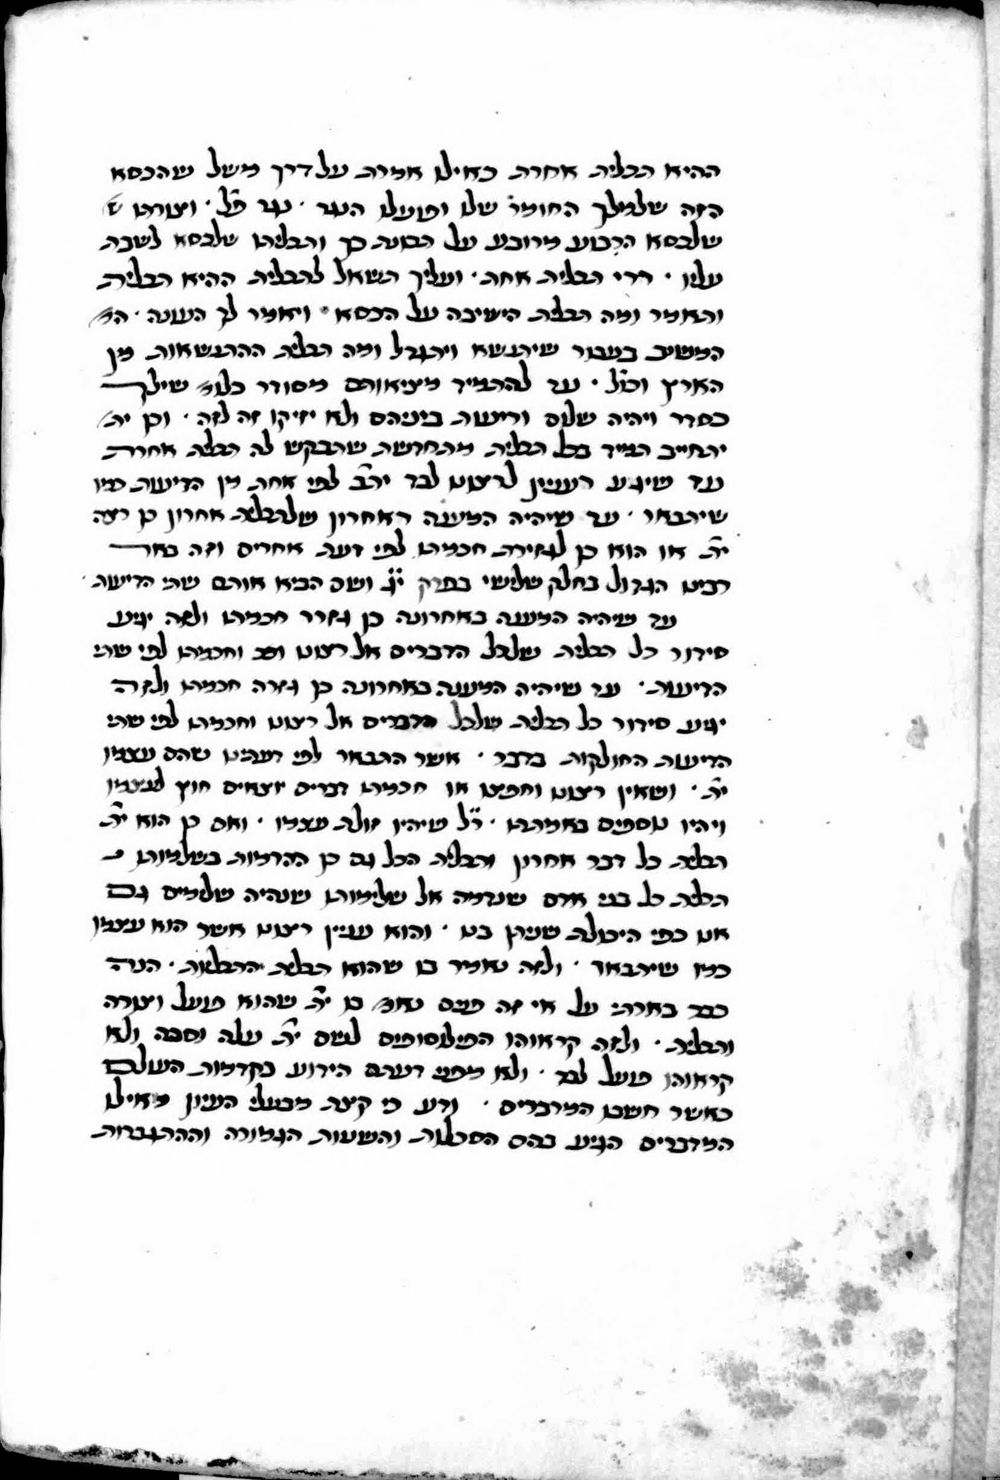 ההיא תכלית אחרת כאילו אמרת על דרך משל שהכסא
הזה שלמלך החומר שלו ופועלו הנגר · נגר פל׳ · וצורתו ש׳
שלכסא הרבוע מרובע על תכונת כך ותכליתו שלכסא לשבת
עליו · הרי תכלית אחת · ועליך תשאל לתכלית ההיא תכלית
ותאמר ומה תכלית הישיבה על הכסא · ויאמר לך העונה · הו׳
המשיב בעבור שיתנשא ויתגדל ומה תכלית ההתנשאות מן
הארץ וכו׳ל · עד להתמיד מציאותם מסודר כלומ׳ שילך
כסדר ויהיה שלום וריעות ביניהם ולא יזיקו זה לזה · וכן ית׳
יתחייב תמיד בכל תכלית מתחדשת שתבקש לה תכלית אחרת
עד שיגיע העניין לרצונו לבד ית׳ לפי אחת מן הדיעות כמו
שיתבאר · עד שיהיה המענה האחרון שלתכלית אחרון כן רצה
ית׳ או הוא כן לגזירת חכמתו לפי דעת אחרים וזה באר
רבינו הגדול בחלק שלישי בפרק י״ג ושם הביא אותם שתי הדיעות
עד שיהיה המענה באחרונה כן גזרר חכמתו ולזה יגיע
סידור כל תכלית שלכל הדברים אל רצונו וגו׳ וחכמתו לפי שתי
הדיעות · עד שיהיה המענה באחרונה כן גזרה חכמתו ולזה
יגיע סידור כל תכלית שלכל הדברים אל רצונו וחכמתו לפי שתי
הדיעות החולקות בדבר · אשר התבאר לפי דעתינו שהם עצמו
ית׳ · ושאין רצונו וחפצו או חכמתו דברים יוצאים חוץ לעצמו
ויהיו נוספים באמתתו · ר״ל שיהיו זולת עצמו · ואם כן הוא ית׳
תכלית כל דבר אחרון ותכלית הכל גם כן ההדמות בשלמותו
תכלית כל בני אדם שנדמה אל שלימותו שנהיה שלמים גם
אנו כפי היכולת שניתן בנו · והוא עניין רצונו אשר הוא עצמו
כמו שיתבאר · ולזה נאמר בו שהוא תכלית התכליות · הנה
כבר בארתי על אי זה פנים נאמ׳ בו ית׳ שהוא פועל וצורה
ותכלית · ולזה קראוהו הפילוסופים לשם ית׳ עלה וסבה ולא
קראוהו פועל לבד · ולא מפני דעתם הידוע בקדמות העולם
כאשר חשבו המדברים · ודע כי קצת מבעלי העיון מאילו
המדברים הגיע בהם הסכלות והשעות הגמורה וההתגברות